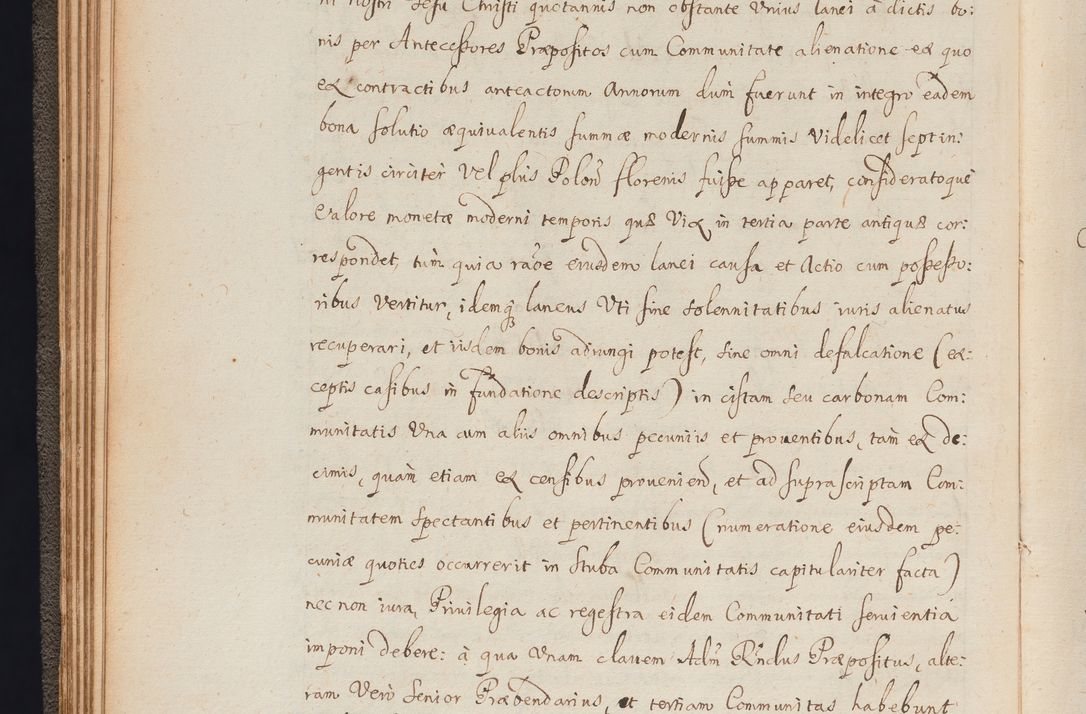 ni nostri Jesu Christi quotannis non obstante Unius lanei à dictis bo:
nis per Antecessores Præpositos cum Communitate alienatione ex quo
ex contractibus anteactorum Annorum dum fuerunt in integro eadem
bona solutio æquivalentis summæ modernis summis Videlicet septin:
gentis circiter Vel plus Polon florenis fuisse apparet, consideratoque
Valore monetæ moderni temporis quæ Vix in tertia parte antiquæ cor:
respondet, tum quia raõe eiusdem lanei causa et Actio cum possesso:
ribus Vertitur, idemq; laneus Uti sine solennitatibus iuris alienatus
recuperari, et iisdem bonis adiungi potest, sine omni defalcatione (ex:
ceptis casibus in fundatione descriptis) in cistam seu carbonam Com:
munitatis Una cum aliis omnibus pecuniis et prouentibus, tam ex de:
cimis, quàm etiam ex censibus proueniend, et ad suprascriptam Com:
munitatem spectantibus et pertinentibus (numeratione eiusdem pe:
cuniæ quoties occurrerit in Stuba Communitatis capitulariter facta)
nec non iura, Priuilegia ac regestra eidem Communitati seruientia
imponi debere: à qua Unam clauem Adm Rndus Præpositus, alte:
ram Verò Senior Præbendarius, et tertiam Communitas habebunt